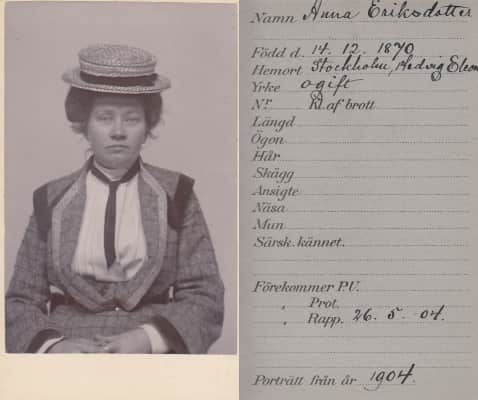 Namn Anna Eriksdotter
Född d. 14. 12. 1870
Hemort Stockholm, Hedvig Eleon
Yrke ogift
Nr. Kl. af brott
Längd
Ögon
Hår
Skägg
Ansigte
Näsa
Mun
Särsk. kännet.
Förekommer P.U.
" Prot.
" Rapp. 26. 5. 04.
Porträtt från år 1904.